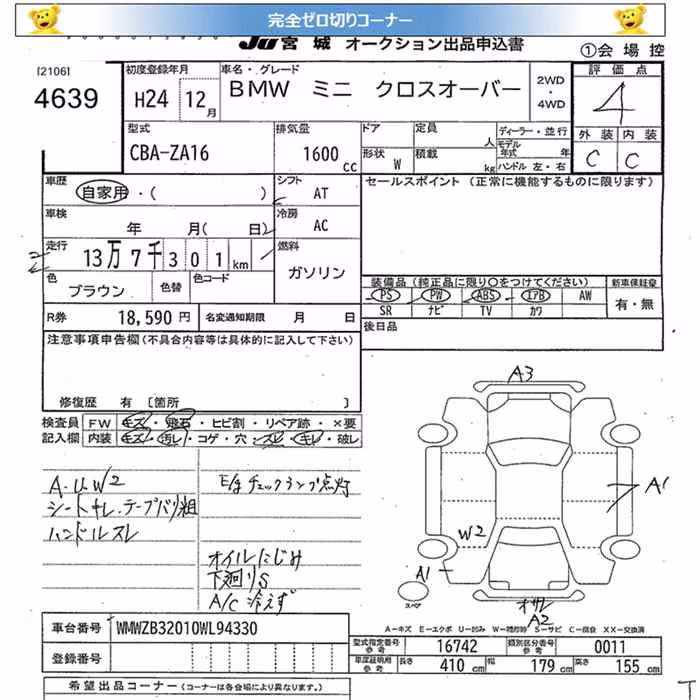 完全ゼロ切りコーナー
JU 宮 城 オークション出品申込書
①会 場 控
[2106]
4639
初度登録年月
H24 12月
車名・グレード
BMW ミニ クロスオーバー
2WD
・
4WD
評 価 点
4
外 装 内 装
C C
型式
CBA-ZA16
排気量
1600
CC
ドア
定員
人
ディーラー・並行
形状
W
積載
kg
モデル年式 年
ハンドル 左・右
車歴
自家用・( )
シフト
AT
セールスポイント (正常に機能するものに限ります)
車検
年 月( 日)
冷房
AC
走行
13万7千301km
燃料
ガソリン
色
ブラウン
色替
色コード
装備品 (純正品に限り○をつけてください)
新車保証書
PS PW ABS エアB AW
SR ナビ TV カワ
有・無
R券 18,590 円
名変通知期限 月 日
後日品
注意事項申告欄 (不具合内容等は具体的に記入して下さい)
修復歴 有 [箇所 ]
検査員
記入欄
FW キズ・飛石・ヒビ割・リペア跡・×要
内装 キズ・汚レ・コゲ・穴・スレ・キレ・破レ
A・U W2
シートキレ、テープバリ粗
ハンドルスレ
E/gチェックランプ点灯
オイルにじみ
下廻りS
A/C 冷えず
A3
A1
W2
A1
スペア
オサレ
A2
A−キズ E−エクボ U−凹み W−補修跡 S−サビ C−腐食 XX−交換済
車台番号 WMWZB32010WL94330
登録番号
型式指定番号 16742
類別区分番号 0011
車庫証明用参考
長さ 410 cm
幅 179 cm
高さ 155 cm
希望出品コーナー (コーナーは各会場により異なります。)